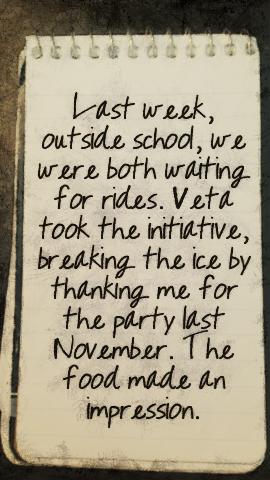 Last week,
outside school, we
were both waiting
for rides. Veta
took the initiative,
breaking the ice by
thanking me for
the party last
November. The
food made an
impression.